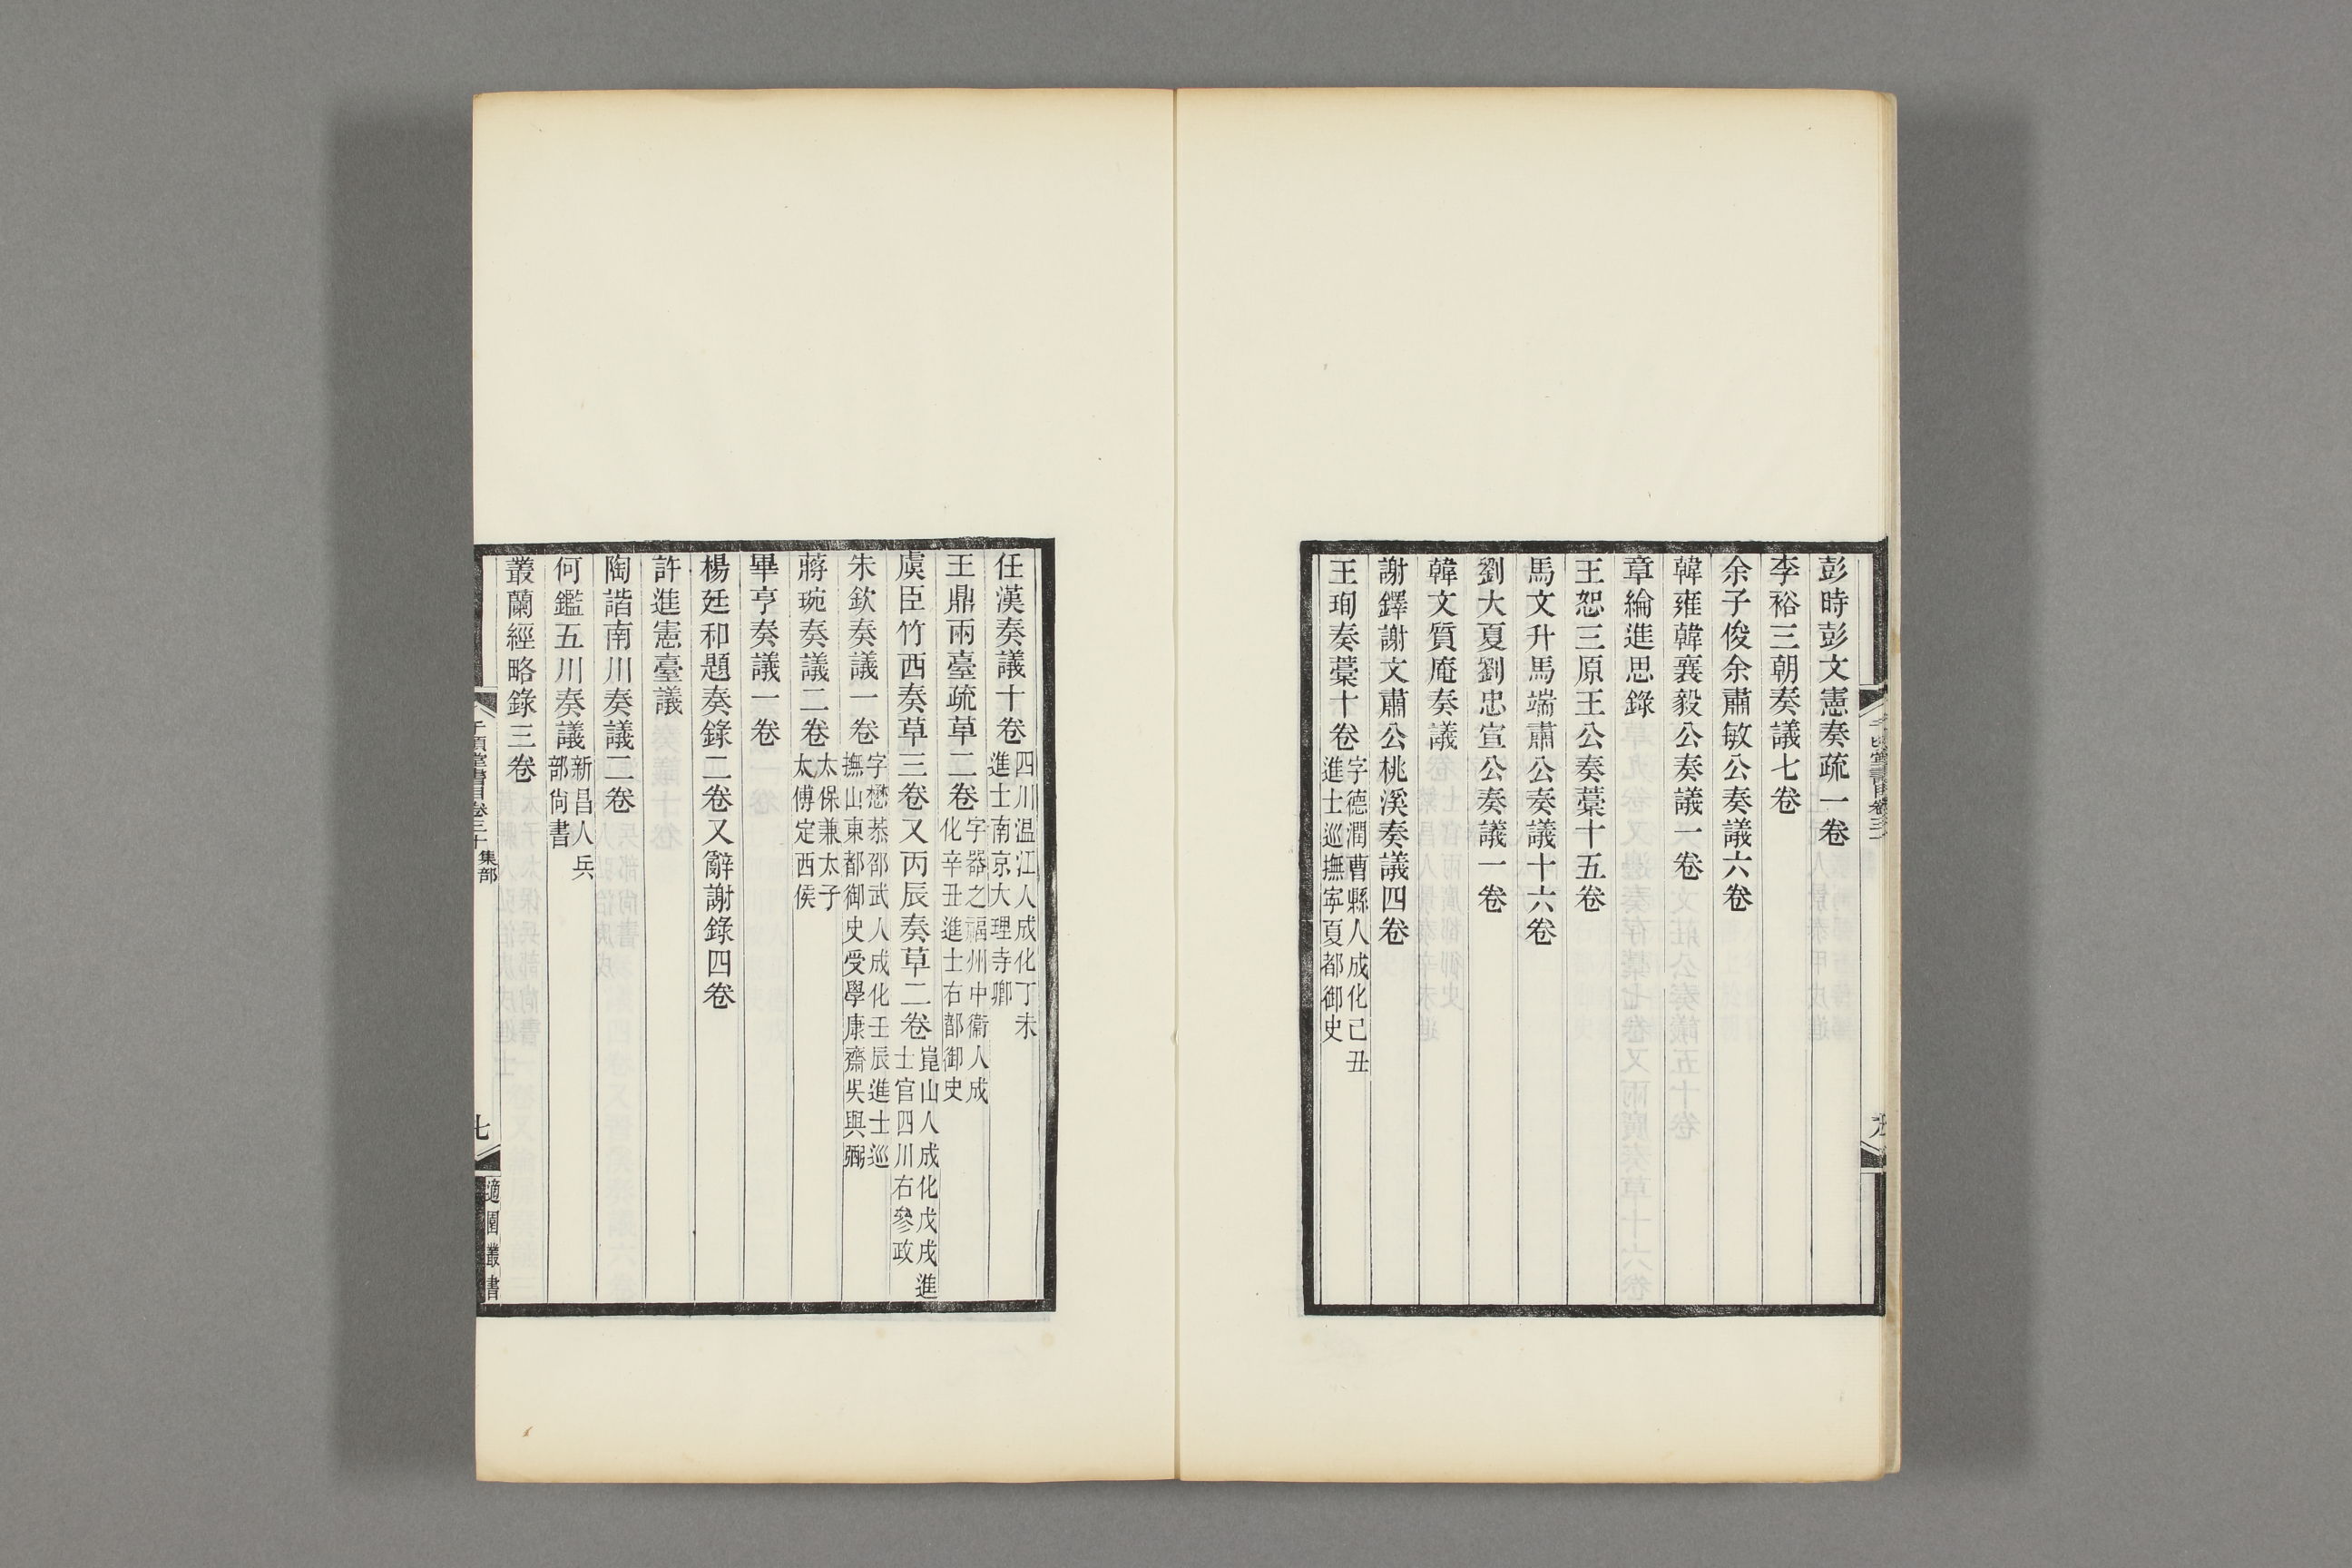 彭時彭文憲奏疏一卷
李裕三朝奏議七卷
余子俊余肅敏公奏議六卷
韓雍韓襄毅公奏議一卷
章綸進思錄
王恕三原王公奏藁十五卷
馬文升馬端肅公奏議十六卷
劉大夏劉忠宣公奏議一卷
韓文質庵奏議
謝鐸謝文肅公桃溪奏議四卷
王珣奏藁十卷
字德潤曹縣人成化己丑
進士巡撫寧夏都御史
任漢奏議十卷
四川温江人成化丁未
進士南京大理寺卿
王鼎兩臺疏草二卷
字器之福州中衞人成
化辛丑進士右都御史
虞臣竹西奏草三卷又丙辰奏草二卷
崑山人成化戊戌進
士官四川右參政
朱欽奏議一卷
字懋恭邵武人成化壬辰進士巡
撫山東都御史受學康齋吳與弼
蔣琬奏議二卷
太保兼太子
太傅定西侯
畢亨奏議一卷
楊廷和題奏錄二卷又辭謝錄四卷
許進憲臺議
陶諧南川奏議二卷
何鑑五川奏議
新昌人兵
部尚書
叢蘭經略錄三卷
千頃堂書目卷三十
集部
七
適園叢書